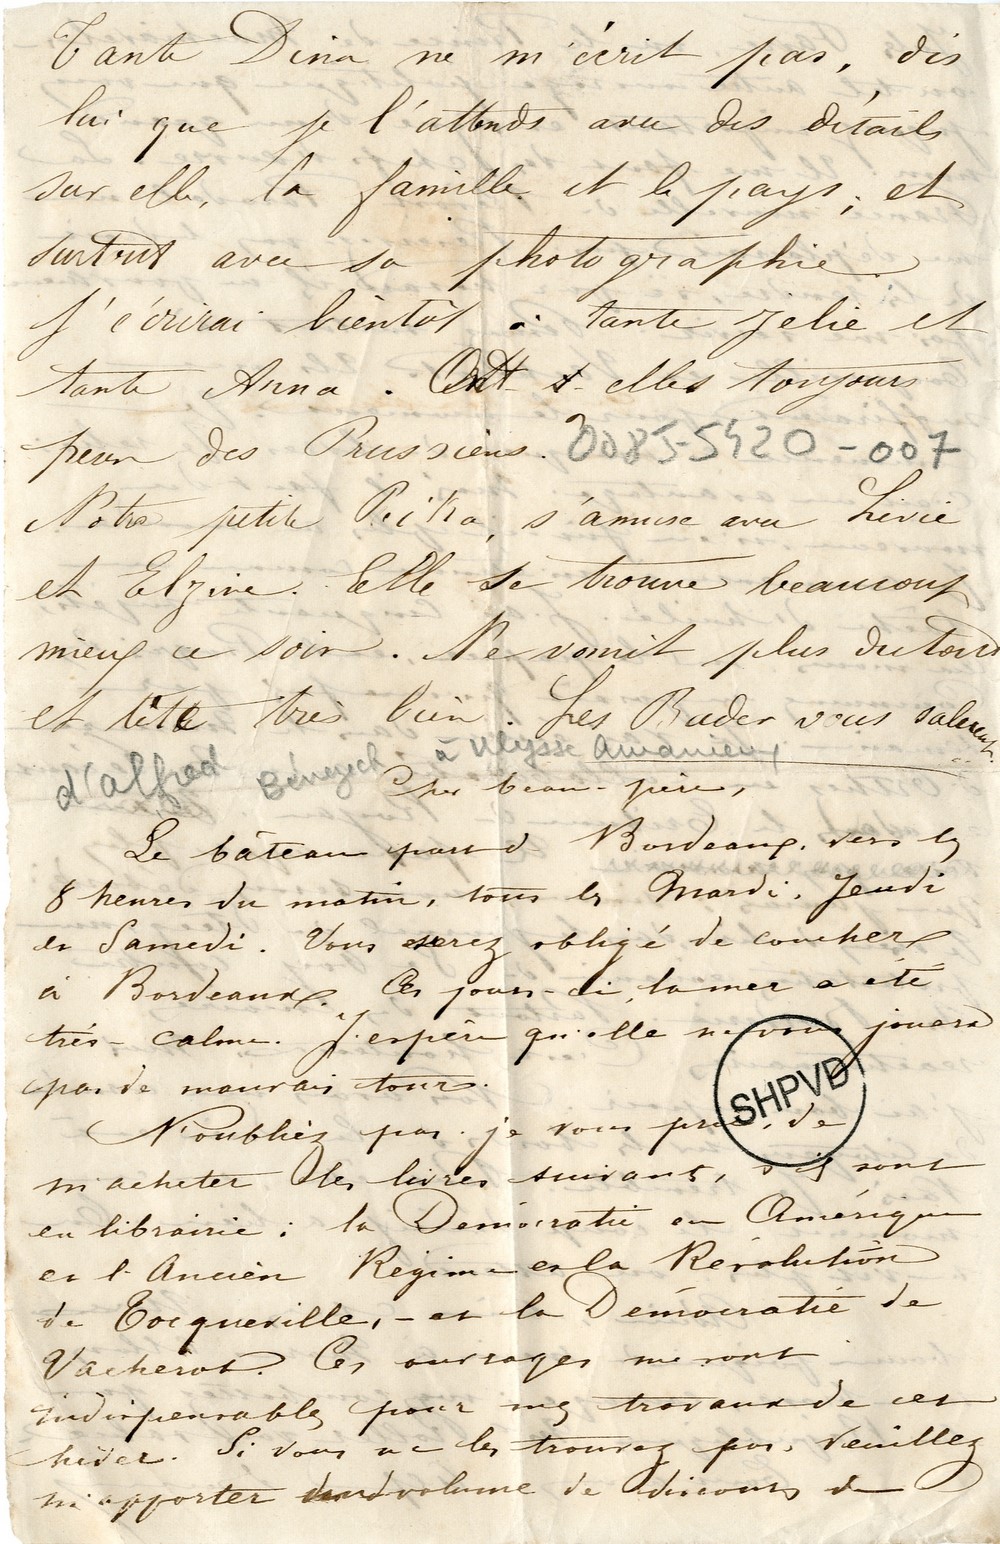 Tante Dina ne m'écrit pas, dis
lui que je l'attends avec des détails
sur elle, la famille et le pays, et
surtout avec sa photographie.
J'écrirai bientôt à tante Jelie et
tante Anna. Ont-elles toujours
peur des Prussiens. 0085-5420-007
Notre petite s'amuse avec Livie
et Elzire. Elle se trouve beaucoup
mieux ce soir. Ne vomit plus du tout
et tête très bien. Les Bader vous saluent.
d'alfred Benezech à Ulysse Amanieux
Cher beau-père,
Le bâteau part de Bordeaux, vers les
8 heures du matin, tous les Mardi, Jeudi
et Samedi. Vous serez obligé de coucher
à Bordeaux. Ces jours-ci, la mer a été
très-calme. J'espère qu'elle ne vous jouera
pas de mauvais tours.
N'oubliez pas, je vous prie, de
m'acheter les livres suivants, s'ils sont
en librairie : la Démocratie en Amérique
et l'Ancien Régime et la Révolution
de Tocqueville, - et la Démocratie de
Vacherot. Ces ouvrages me sont
indispensables pour mes travaux de cet
hiver. Si vous ne les trouvez pas, veuillez
m'apporter volume de discours de
SHPVD